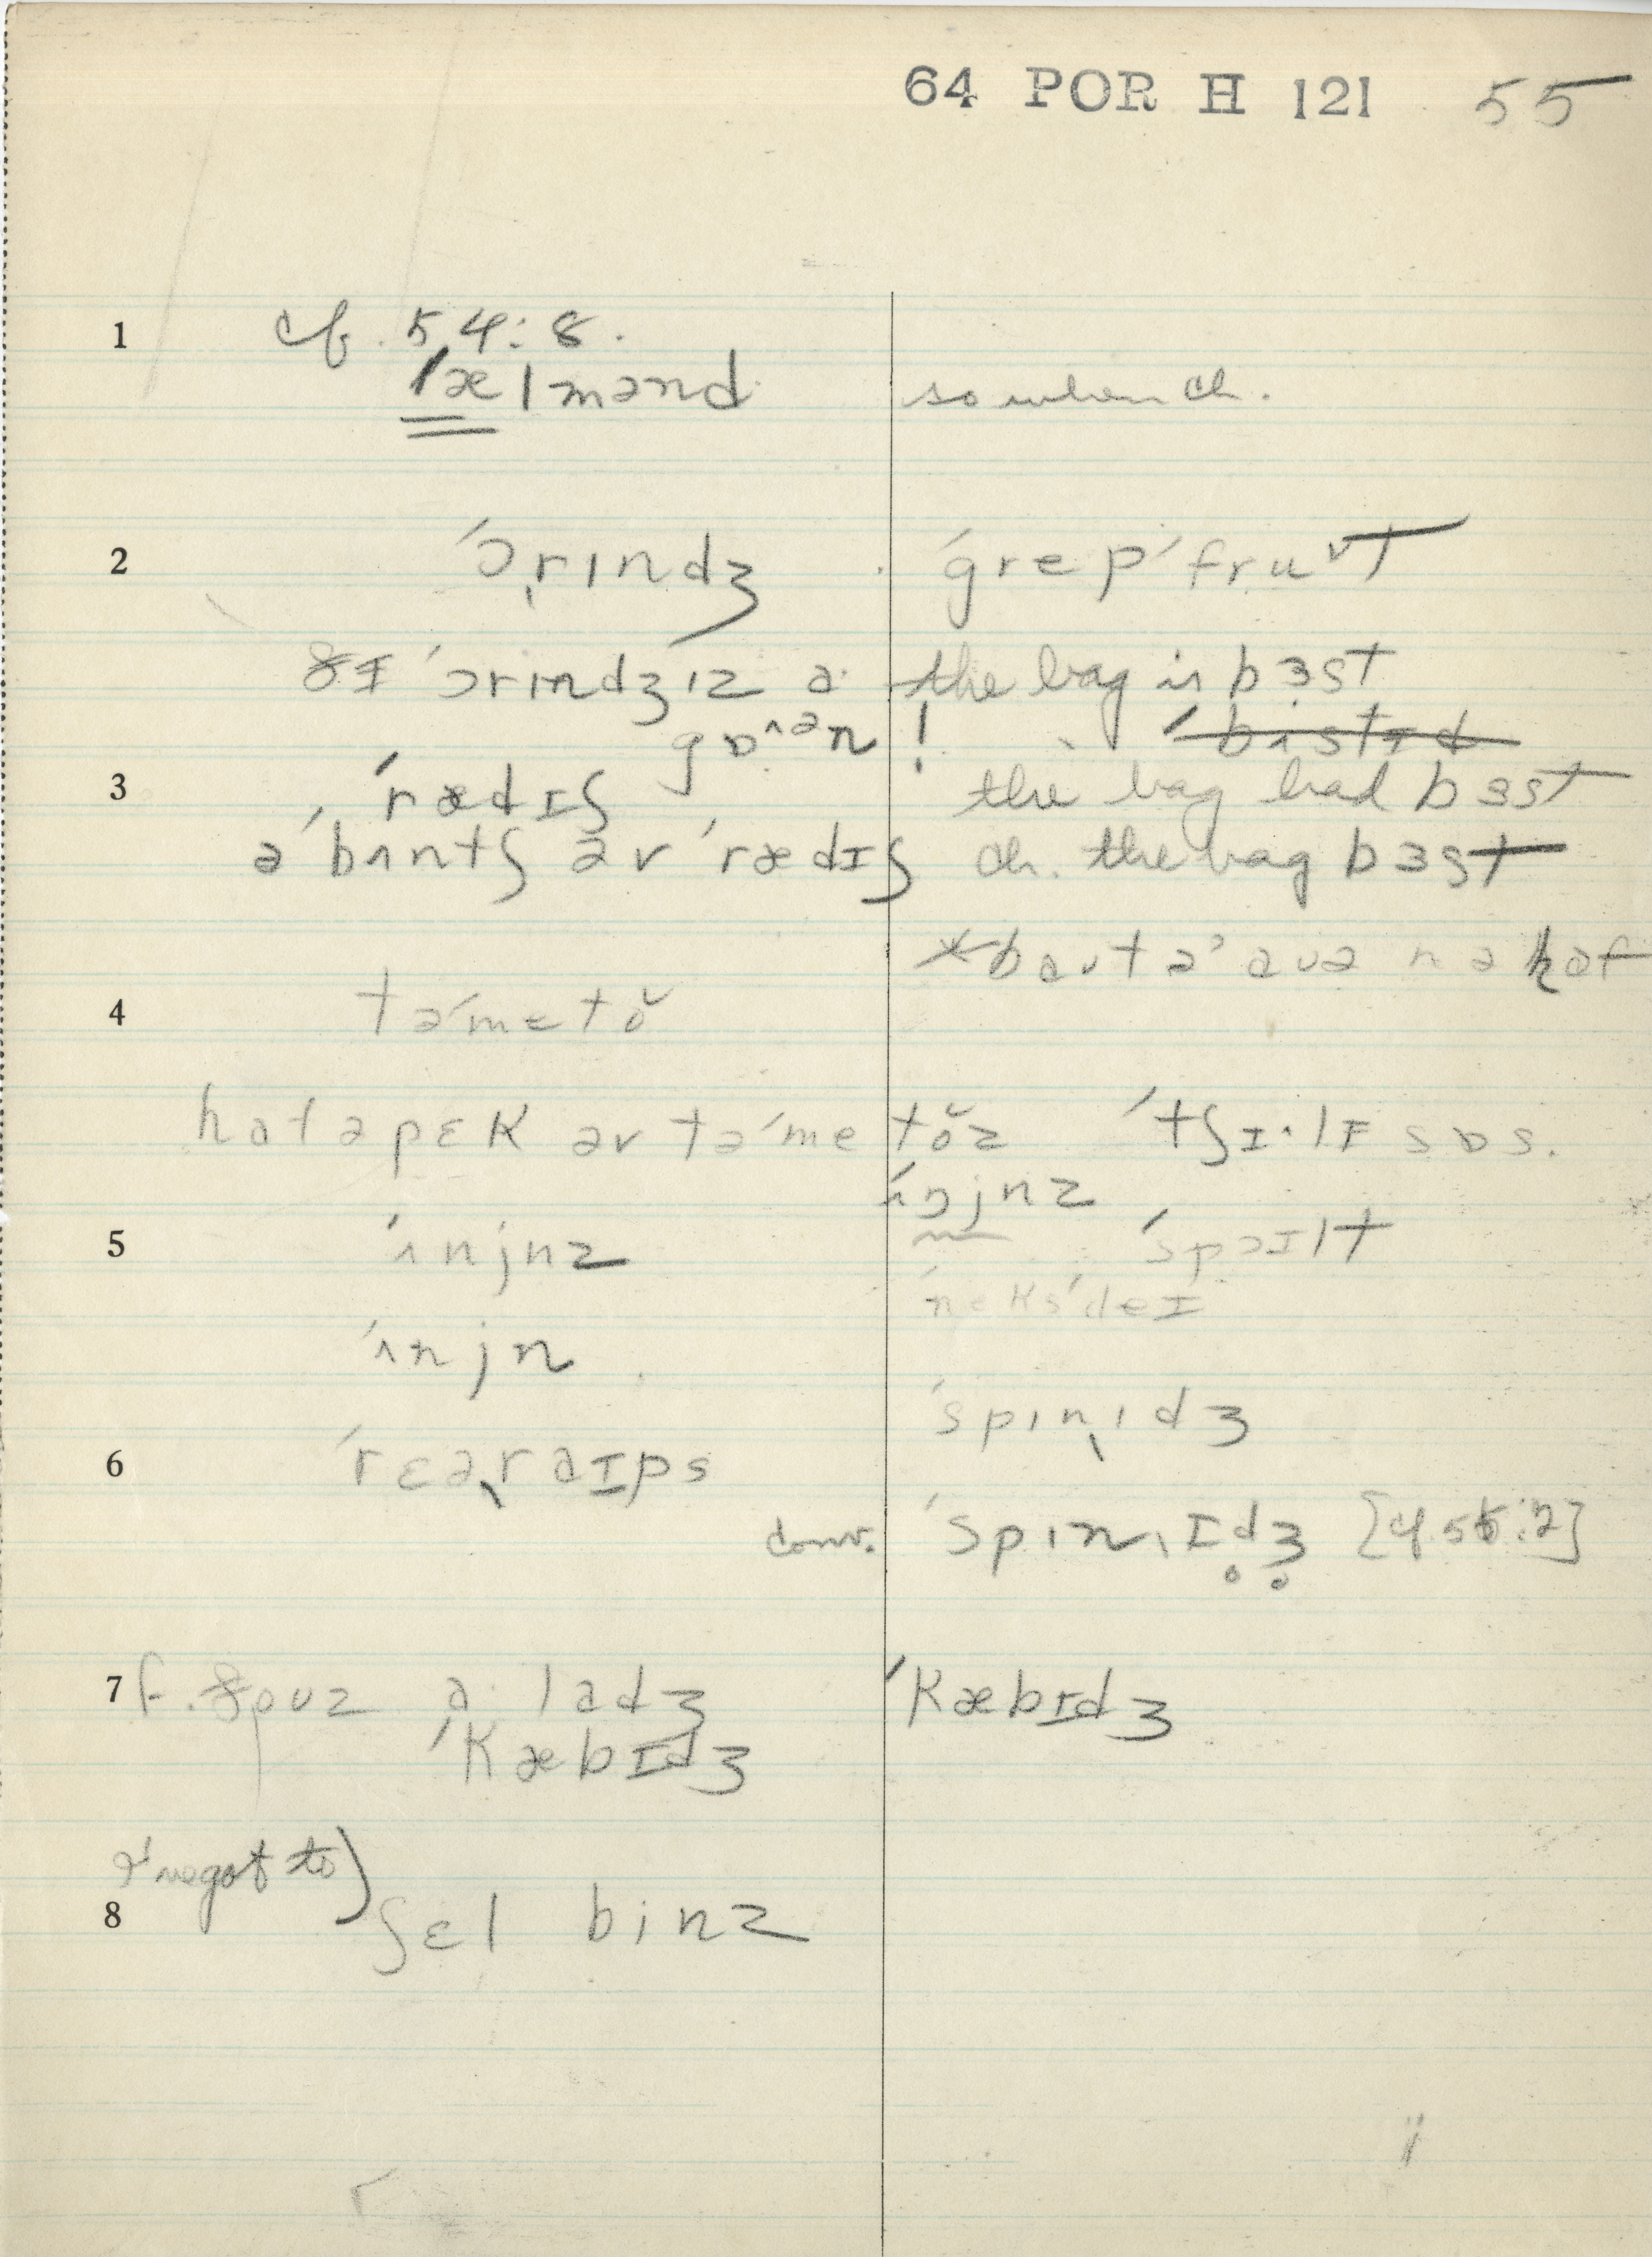 64 POR H 121 55
1 cf. 54:8.
ˈælmənd so when ch.
2 ˈɔrɪndʒ ˈgrepˈfruᴠt
ðɪ ˈɔrɪndʒ ɪz ə· the bag is bɜst
gɒʌən! ˈbʌstɪd
3 ˈrædɪʃ the bag had bɜst
əˈbʌntʃ əv ˈrædɪʃ ch. the bag bɜst
4 təˈmetŏ
hafəpɛk əv təˈmetŏz ˈtʃɪ·lɪ sɒs.
ˈʌnjnz
5 ˈʌnjnz ˈspɔɪlt
ˈneksˈdeɪ
ˈʌnjn
ˈspɪnɪdʒ
6 ˈrɛəraɪps
conv. ˈspɪnɪdʒ [cf. 55:2]
7 f. ðouz ə· ladʒ ˈkæbɪdʒ
ˈkæbɪdʒ
8 ʃɛl binz